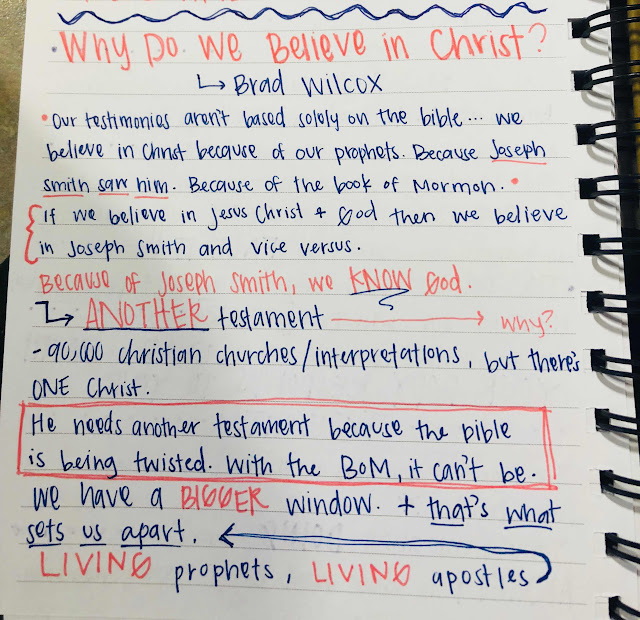 Why Do We Believe in Christ?
↳ Brad Wilcox
• Our testimonies aren't based solely on the bible... we
believe in Christ because of our prophets. Because Joseph
smith saw him. Because of the book of Mormon. •
If we believe in Jesus Christ + God then we believe
in Joseph Smith and vice versus.
Because of Joseph Smith, we KNOW God.
↳ ANOTHER testament → why?
- 90,000 christian churches/interpretations, but there's
ONE Christ.
He needs another testament because the bible
is being twisted. With the BoM, it can't be.
We have a BIGGER window. + that's what
sets us apart.
LIVING prophets, LIVING apostles